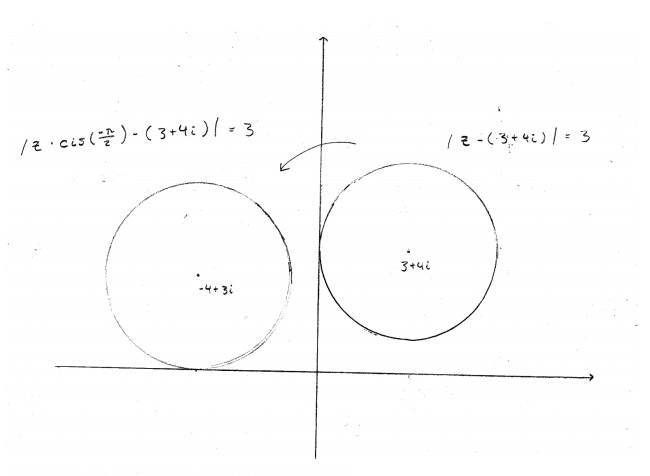 |z · cis(-π/2) - (3+4i)| = 3
|z - (3+4i)| = 3
3+4i
-4+3i